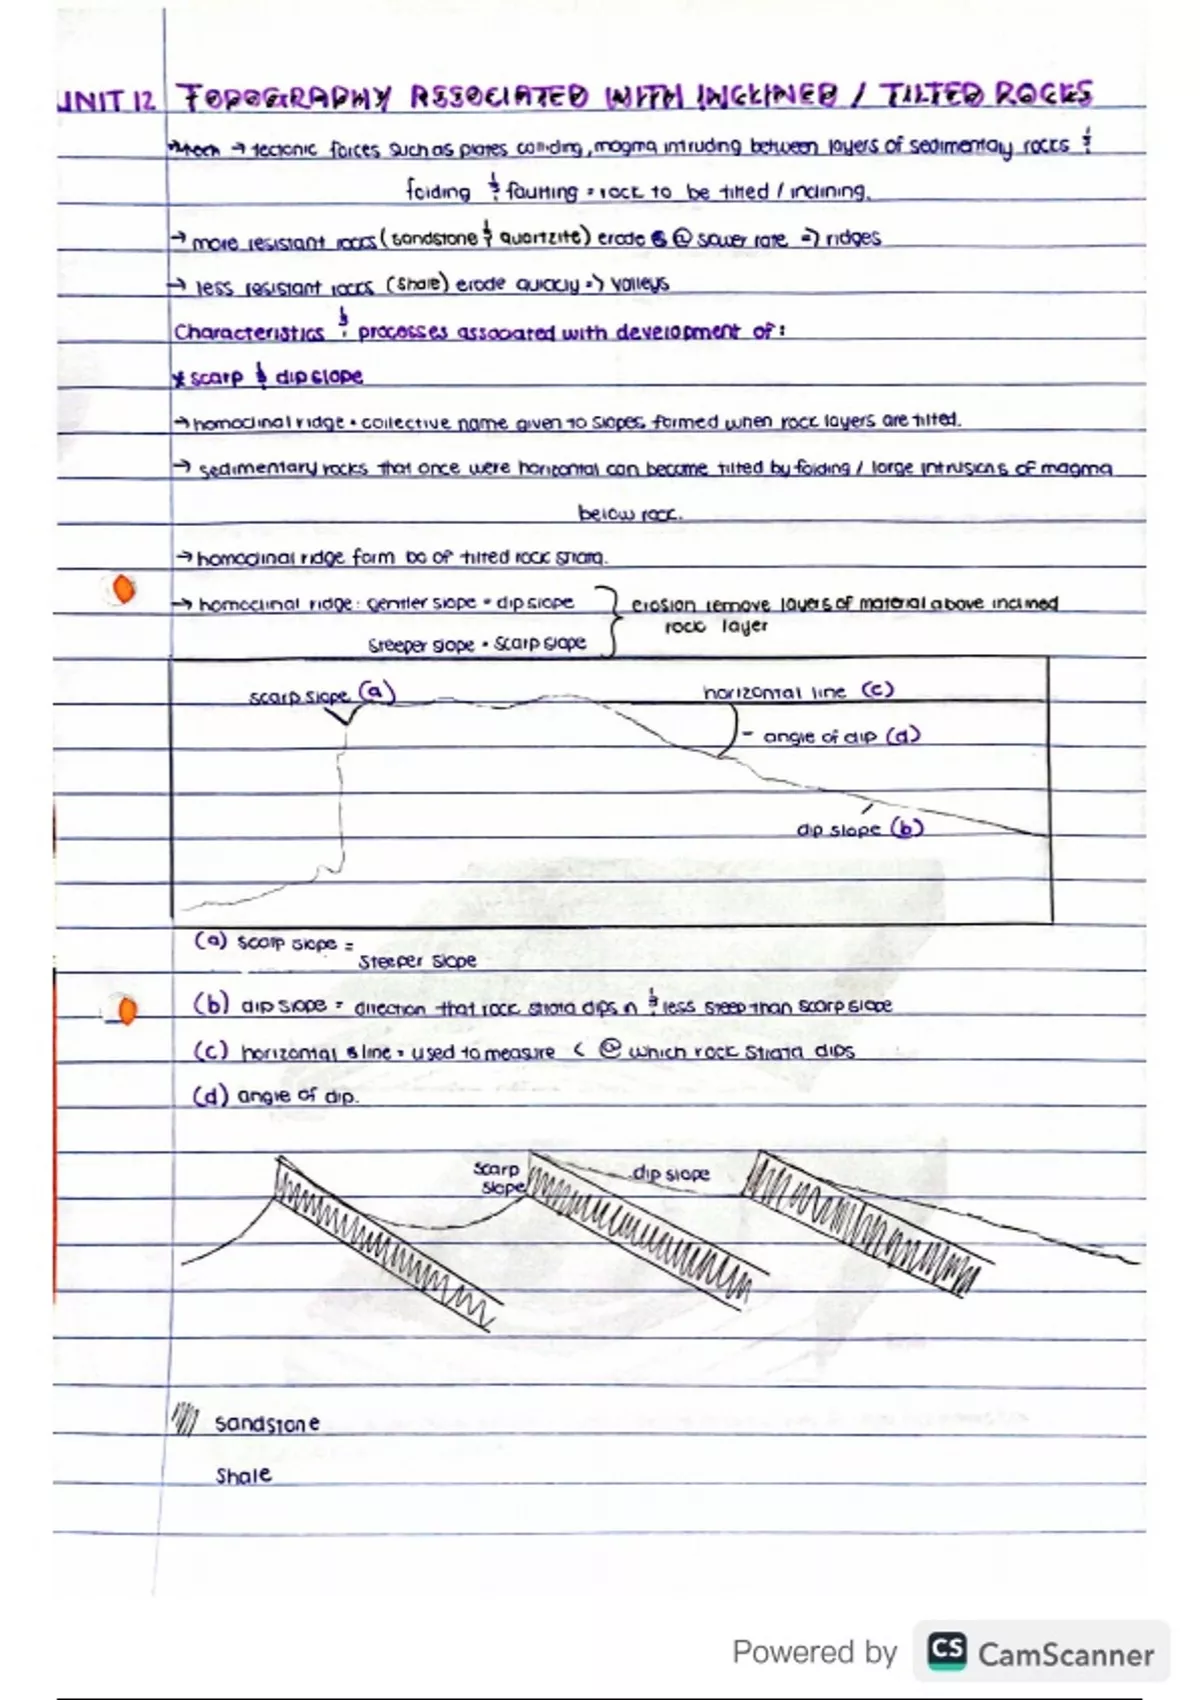 UNIT 12 TOPOGRAPHY ASSOCIATED WITH INCLINED / TILTED ROCKS
→ tectonic forces such as plates colliding, magma intruding between layers of sedimentary rocks &
folding & faulting = rock to be tilted / inclining.
→ more resistant rocks (sandstone & quartzite) erode @ slower rate => ridges
→ less resistant rocks (shale) erode quickly => valleys
Characteristics & processes associated with development of:
* scarp & dipslope
→ homoclinal ridge = collective name given to slopes formed when rock layers are tilted.
→ sedimentary rocks that once were horizontal can become tilted by folding / large intrusions of magma
below rock.
→ homoclinal ridge form bc of tilted rock strata.
→ homoclinal ridge: gentler slope = dip slope } erosion remove layers of material above inclined
rock layer
steeper slope = scarp slope
scarp slope (a)
horizontal line (c)
- angle of dip (d)
dip slope (b)
(a) scarp slope =
steeper slope
(b) dip slope = direction that rock strata dips in & less steep than scarp slope
(c) horizontal line = used to measure < @ which rock strata dips
(d) angle of dip.
scarp
slope
dip slope
sandstone
Shale
Powered by CS CamScanner